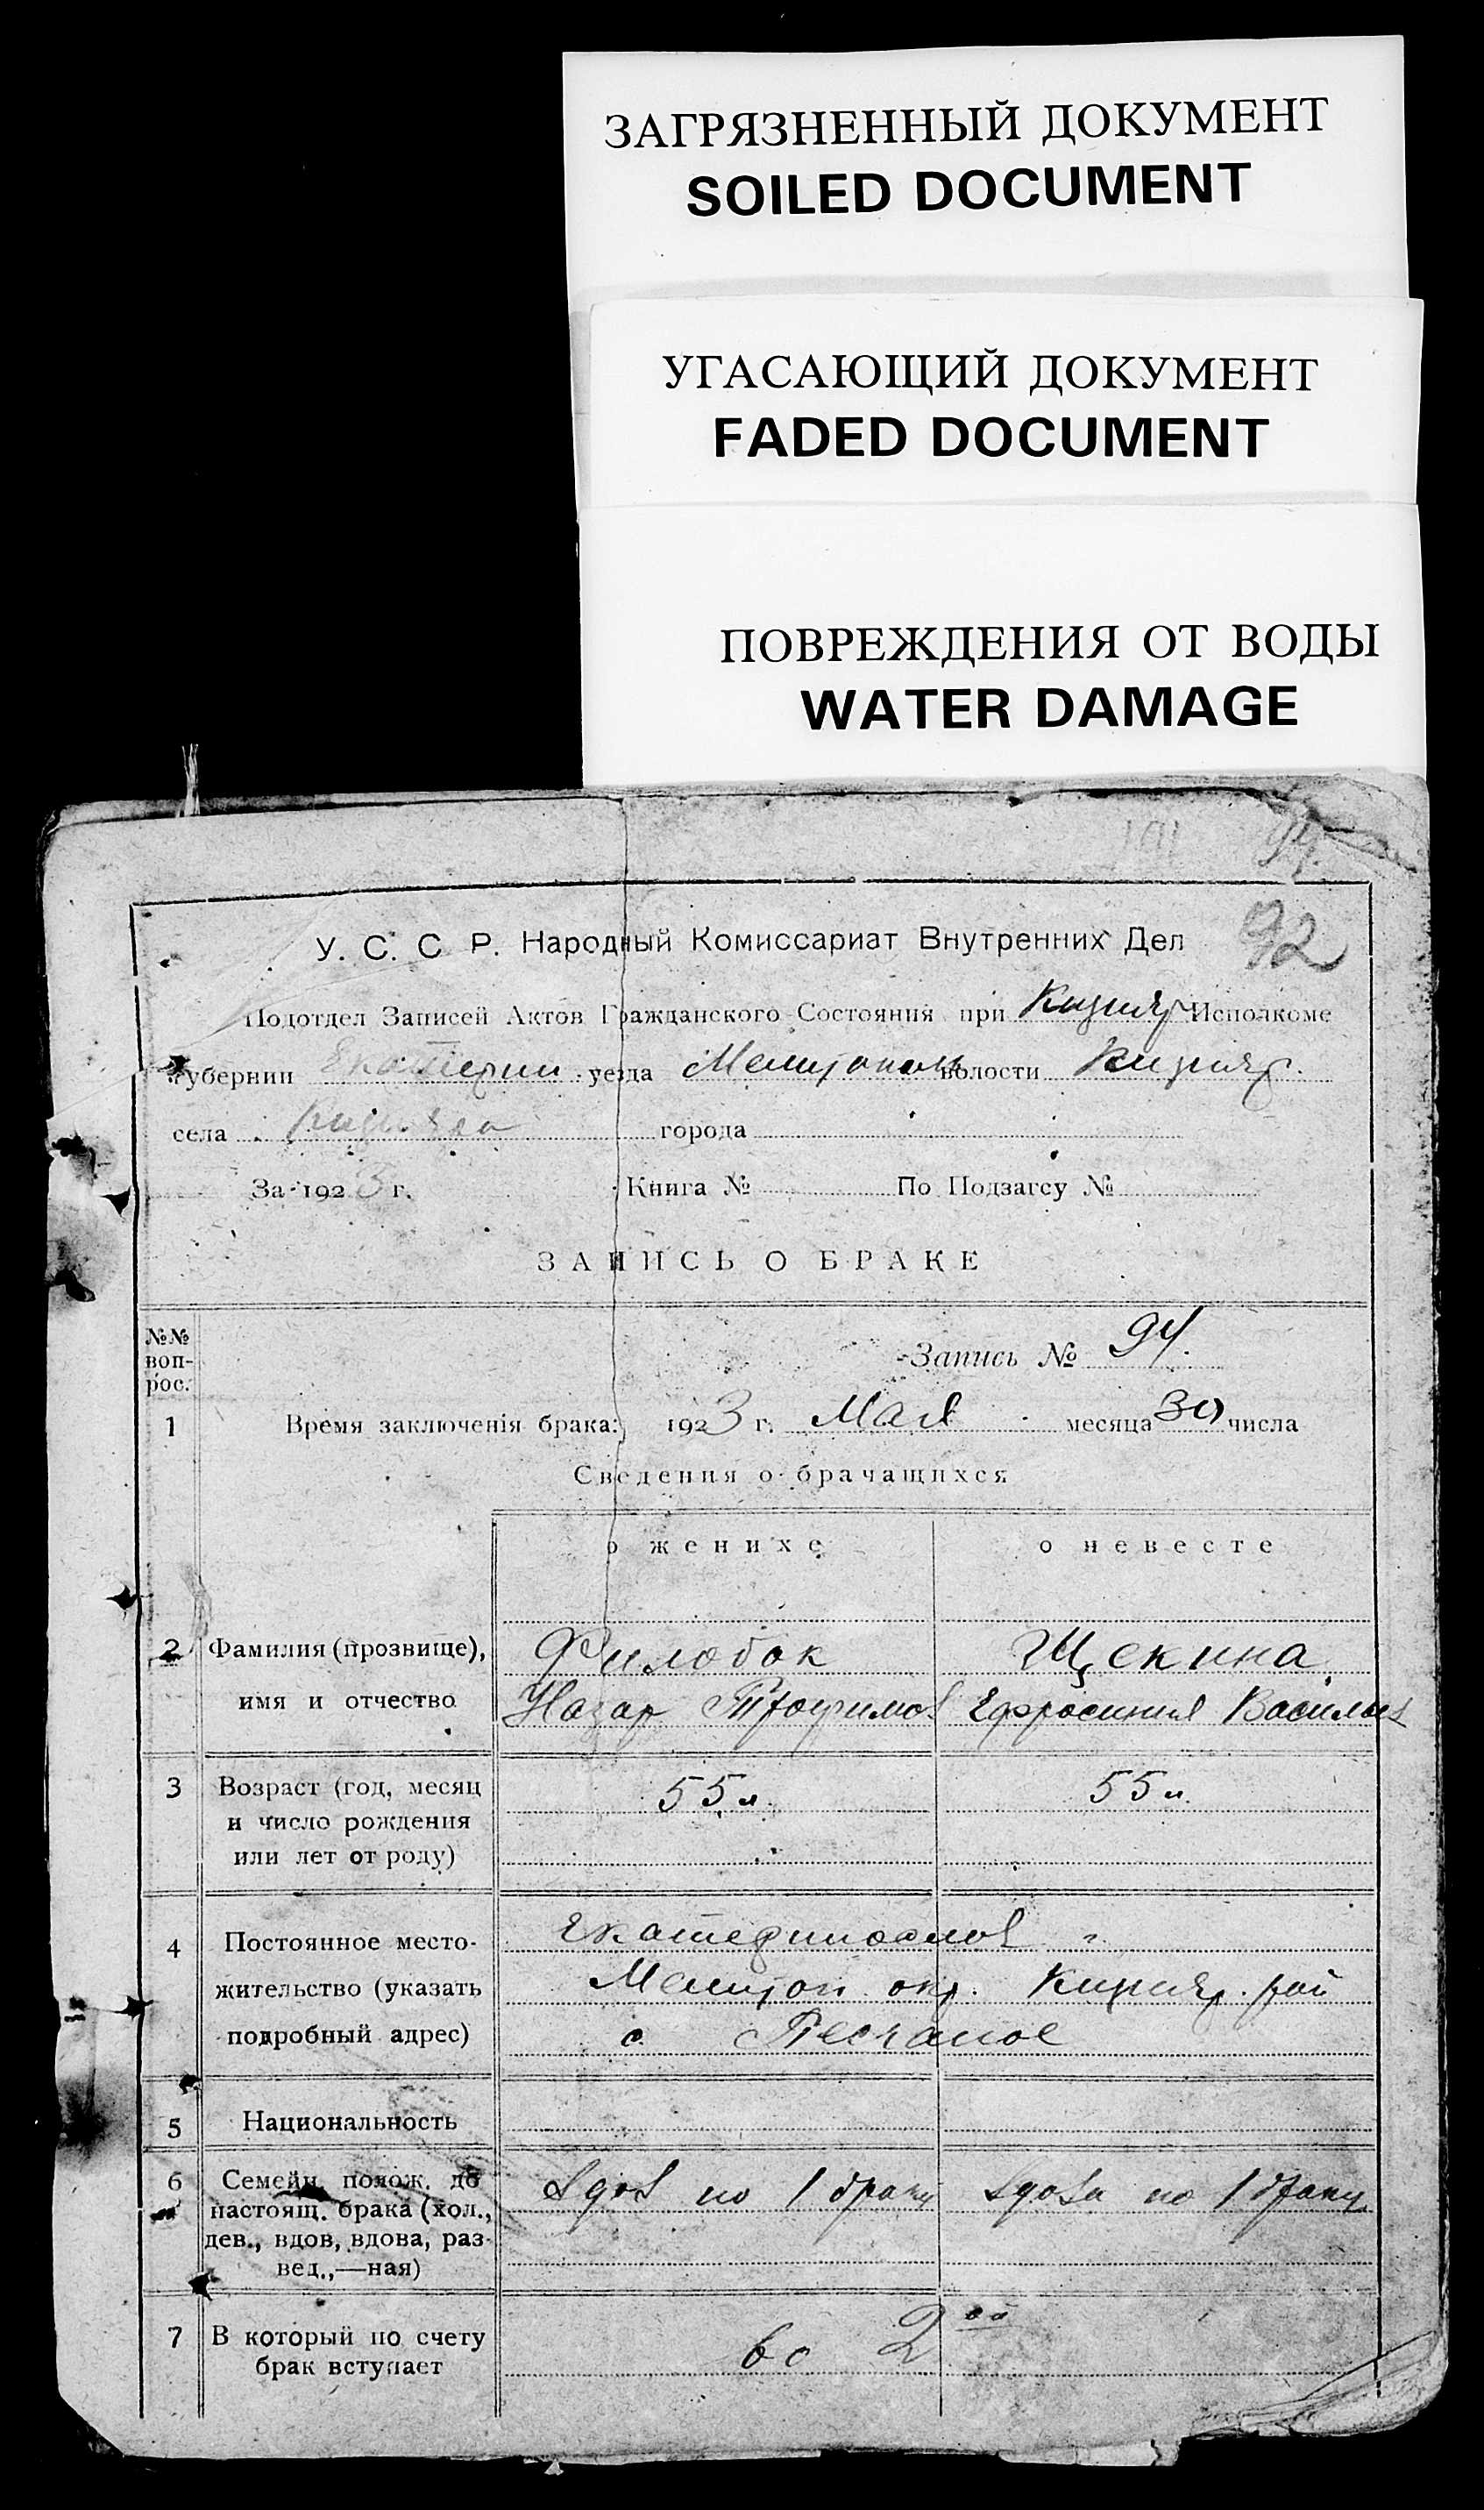 ЗАГРЯЗНЕННЫЙ ДОКУМЕНТ
SOILED DOCUMENT
УГАСАЮЩИЙ ДОКУМЕНТ
FADED DOCUMENT
ПОВРЕЖДЕНИЯ ОТ ВОДЫ
WATER DAMAGE
94.
92
У. С. С Р. Народный Комиссариат Внутренних Дел
Подотдел Записей Актов Гражданского Состояния при Кизияр Исполкоме
Губернии Екатерин. уезда Мелитополь волости Кизияр.
села Кизияр города
За 1923 г. Книга № По Подзагсу №
ЗАПИСЬ О БРАКЕ
№№ воп-рос.
Запись № 94.
1 Время заключенія брака: 1923 г. Мая месяца 30 числа
Сведения о брачащихся
о женихе о невесте
2 Фамилия (прозвище), Филобок Щекина
имя и отчество Назар Трофимов Ефросиния Васильев
3 Возраст (год, месяц 55 л. 55 л.
и число рождения
или лет от роду)
4 Постоянное место- Екатеринослов "
жительство (указать Мелитоп окр. Кизияр. рай
подробный адрес) с. Песчаное
5 Национальность
6 Семейн. полож. до вдов по 1 браку вдова по 1 браку
настоящ. брака (хол.,
дев., вдов, вдова, раз-
вед.,—ная)
7 В который по счету во 2 ой
брак вступает